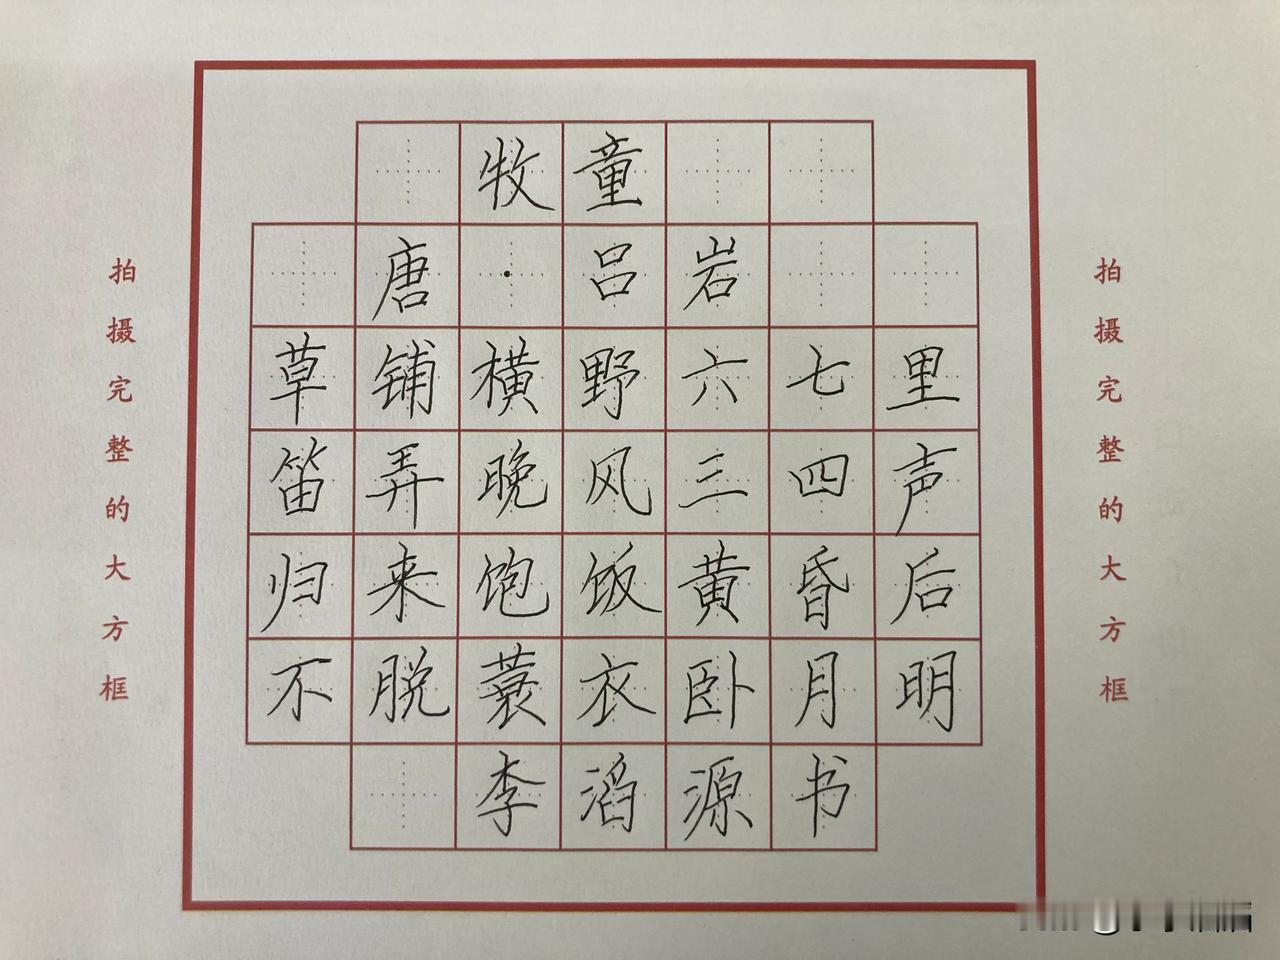 牧童
唐·吕岩
草铺横野六七里
笛弄晚风三四声
归来饱饭黄昏后
不脱蓑衣卧月明
李滔源书
拍摄完整的大方框
拍摄完整的大方框